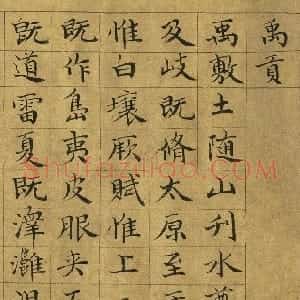 禹貢
禹敷土随山刋水奠
及岐既脩太原至
惟白壤厥賦惟上
既作島夷皮服夾
既道雷夏既澤灉沮